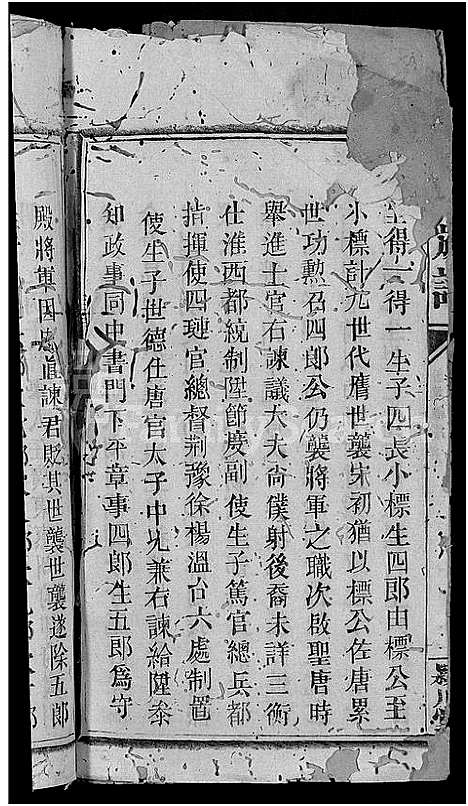 生得一得一生子四長小標生四郎由標公至
小標計九世代膺世襲宋初猶以標公佐唐累
世功勲召四郎公仍襲將軍之職次啟聖唐時
舉進士官右諫議大夫尚僕射後裔未詳三衡
仕淮西都統制陞節度副使生子篤官總兵都
指揮使四璉官總督荆豫徐楊溫台六處制置
使生子世德仕唐官太子中允兼右諫給陞叅
知政事同中書門下平章事四郎生五郎為守
殿將軍因忠眞諫君貶其世襲世襲遂除五郎